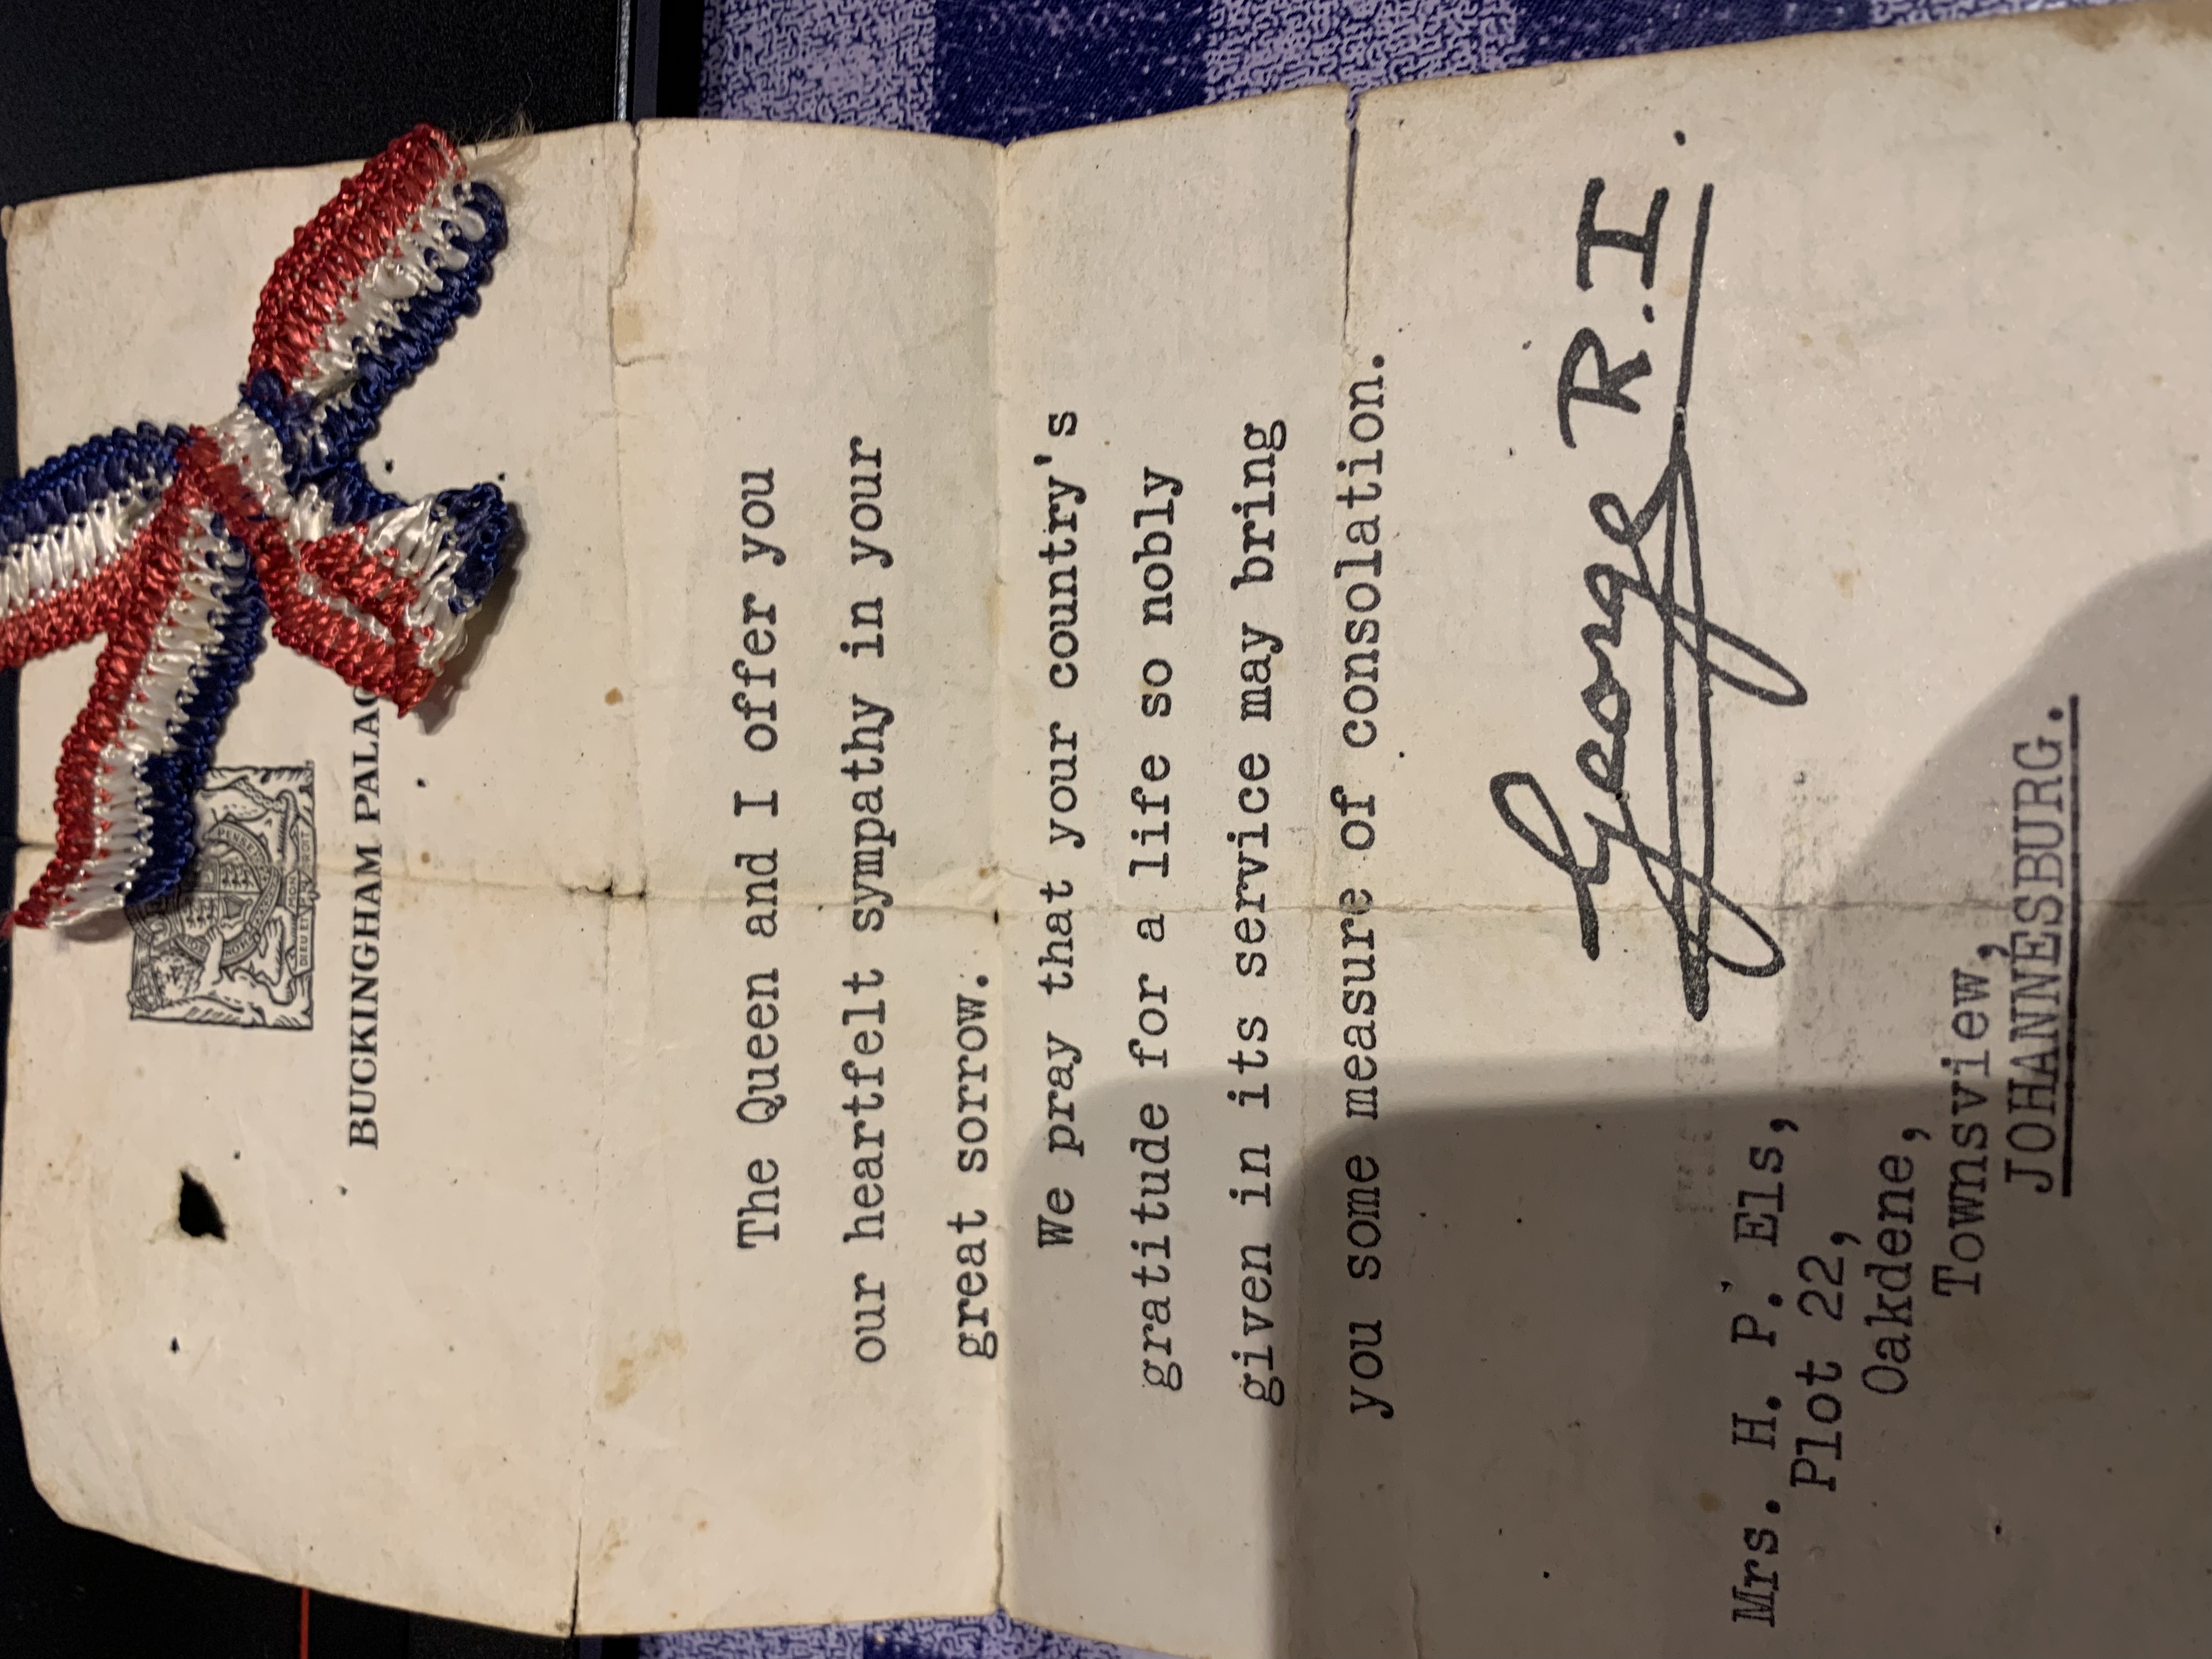 DIEU ET MON DROIT
BUCKINGHAM
The Queen and I offer you
our heartfelt sympathy in your
great sorrow.
We pray that your country's
gratitude for a life so nobly
given in its service may bring
you some measure of consolation.
George R.I.
Mrs. H. P. Els,
Plot 22,
Oakdene,
Townsview,
JOHANNESBURG.